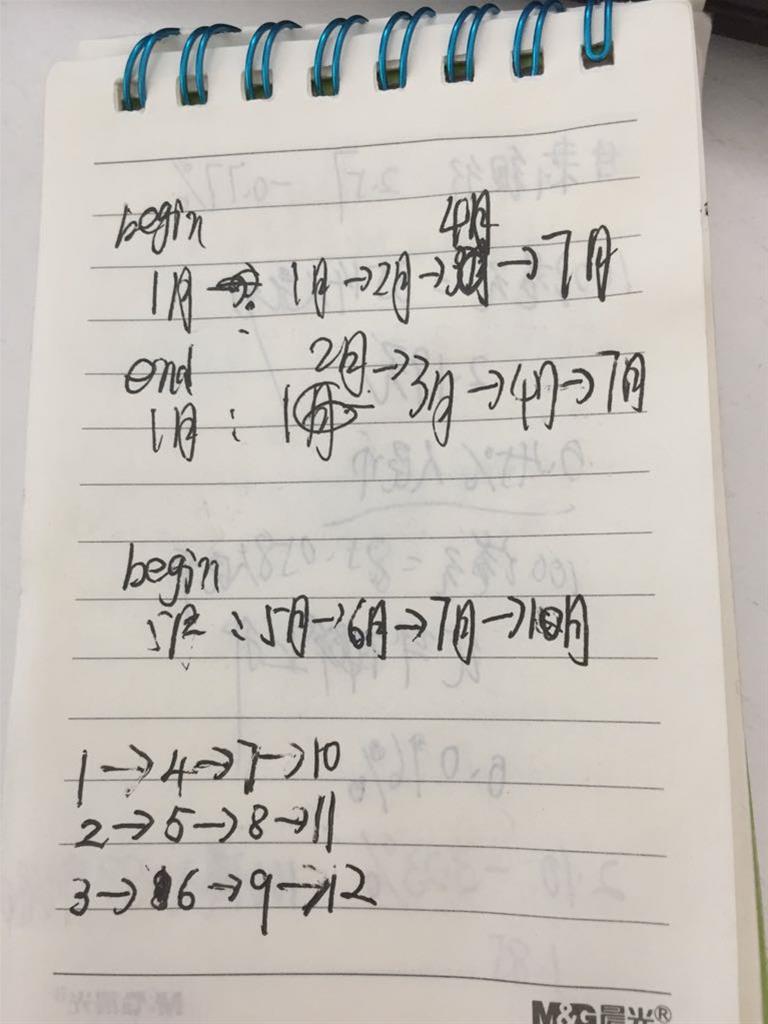 begin
4月
1月 : 1月→2月→→7月
end
2月→3月→4月→7月
1月 : 1月
begin
5月 : 5月→6月→7月→10月
1→4→7→10
2→5→8→11
3→6→9→12
M&G晨光®